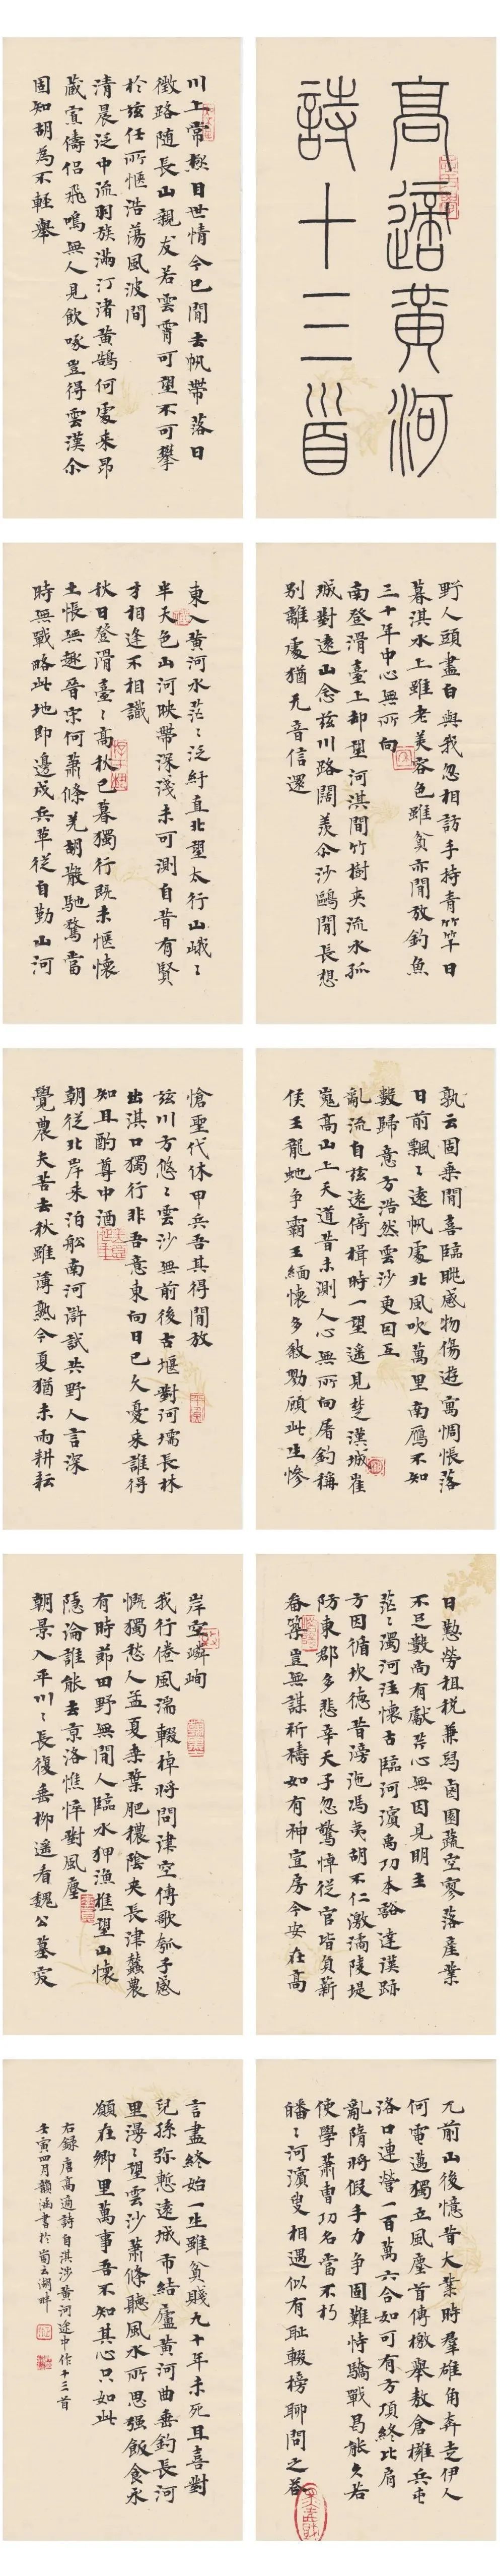 高適黄河
詩十三首
川上常極目世情今已閒去帆帶落日
徵路隨長山親友若雲霄可望不可攀
於兹任所愜浩蕩風波間
清晨泛中流羽族滿汀渚黄鵠何處来昂
藏寡儔侣飛鳴無人見飲啄豈得雲漢尒
固知胡為不輕舉
野人頭盡白與我忽相訪手持青竹竿日
暮淇水上雖老美容色雖貧亦閒放釣魚
三十年中心無所向
南登滑臺上却望河淇間竹樹夾流水孤
城對遠山念兹川路闊羨尒沙鷗閒長想
别離處猶无音信還
東入黄河水茫〻泛紆直北望太行山峨〻
半天色山河映帶深淺未可測自昔有賢
才相逢不相識
秋日登滑臺〻高秋已暮獨行既未愜懷
土悵無趣晉宋何蕭條羌胡散馳騖當
時無戰略此地即邊戍兵革徒自勤山河
孰云固乗閒喜臨眺感物傷遊寓惆悵落
日前飄〻遠帆處北風吹萬里南雁不知
數歸意方浩然雲沙更回互
亂流自兹遠倚楫時一望遥見楚漢城崔
嵬高山上天道昔未測人心無所向屠釣稱
侯王龍虵争霸王緬懷多殺戮顧此生慘
愴聖代休甲兵吾其得閒放
兹川方悠〻雲沙無前後古堰對河壖長林
出淇口獨行非吾意東向日已久憂来誰得
知且酌尊中酒
朝從北岸来泊船南河滸試共野人言深
覺農夫苦去秋雖薄熟今夏猶未雨耕耘
日勤勞租税兼舄鹵園蔬空寥落産業
不足數尚有獻芹心無因見明主
茫〻濁河注懷古臨河濱禹功本豁達漢跡
方因循坎德昔滂沲馮夷胡不仁激潏陵堤
防東郡多悲辛天子忽驚悼從官皆負薪
畚築豈無謀祈禱如有神宣房今安在高
岸空嶙峋
我行倦風湍輟棹將問津空傳歌瓠子感
慨獨愁人孟夏桑葉肥穠陰夹長津蠶農
有時節田野無閒人臨水狎漁樵望山懷
隱淪誰能去京洛憔悴對風塵
朝景入平川〻長復垂柳遥看魏公墓突
兀前山後憶昔大業時羣雄角奔走伊人
何電邁獨立風塵首傳檄舉敖倉擁兵屯
洛口連營一百萬六合如可有方項終比肩
亂隋將假手力争固難恃驕戰曷能久若
使學蕭曹功名當不朽
皤〻河濱叟相遇似有耻輟榜聊問之荅
言盡終始一生雖貧賤九十年未死且喜對
兒孫弥慙遠城市結廬黄河曲垂釣長河
里漫〻望雲沙蕭條聽風水所思强飯食永
願在鄉里萬事吾不知其心只如此
右録唐高適詩自淇涉黄河途中作十三首
壬寅四月韻涵書於蜀云湖畔